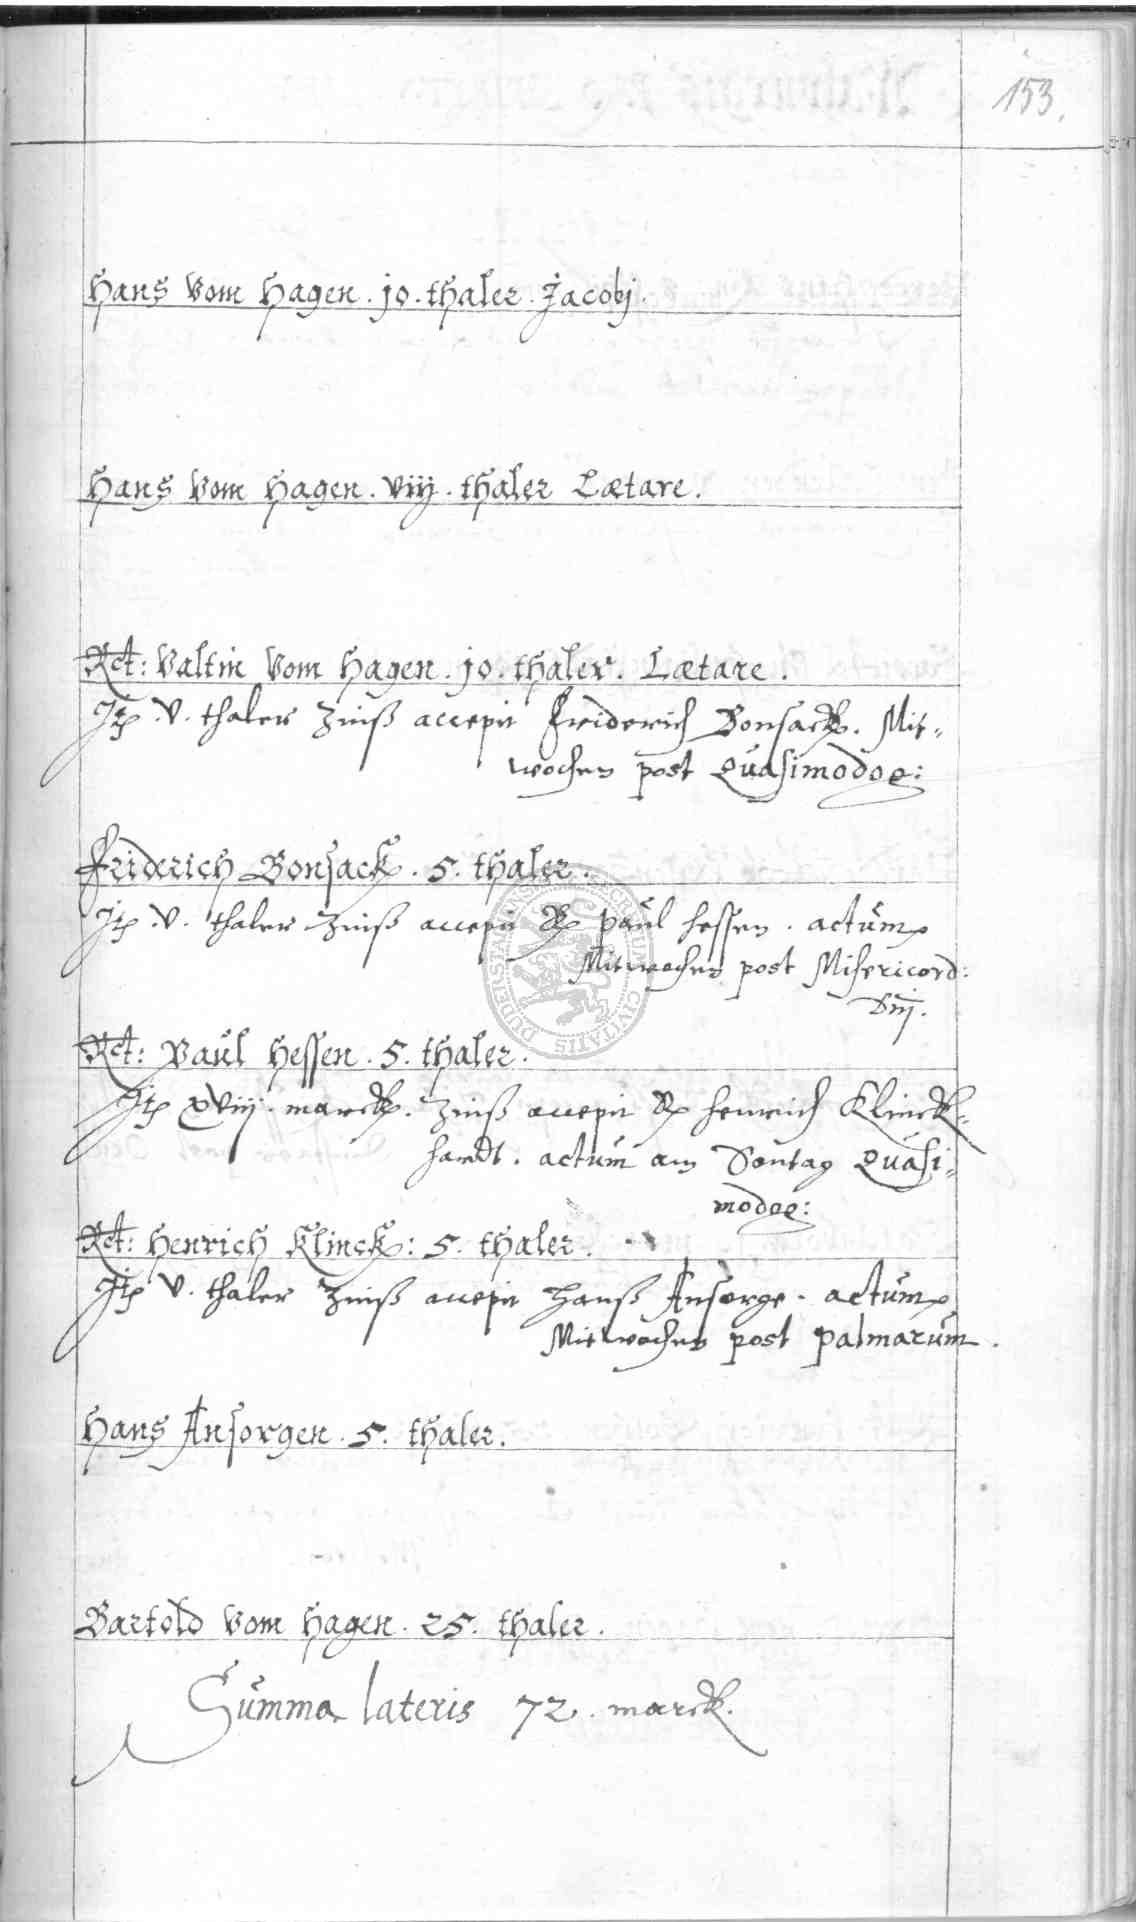 153.
Hans Vom Hagen . jo . thaler . Jacobj .
Hans Vom Hagen . viij . thaler Lætare .
Rct: Valtin Vom Hagen . jo . thaler . Lætare .
Itp . v . thaler Zinß accepit Friderich Bonsack . Mit-
wochen post Quasimodog:
Friderich Bonsack . 5 . thaler .
Itp . v . thaler Zinß accepit Paul Hessen . actum
Mitwochen post Misericord:
Dnj .
Rct: Paul Hessen . 5 . thaler .
Itp xviij . marck . Zinß accepit Henrich Klinck-
hardt . actum am Sontag Quasi-
modog:
Rct: Henrich Klinck: 5 . thaler .
Itp v . thaler Zinß accepit Hanß Ansorge . actum
Mitwochen post palmarum .
Hans Ansorgen . 5 . thaler .
Bartold Vom Hagen . 25 . thaler .
Summa lateris 72 . marck .
DUDERSTADENSIS SECRETUM CIVITATIS